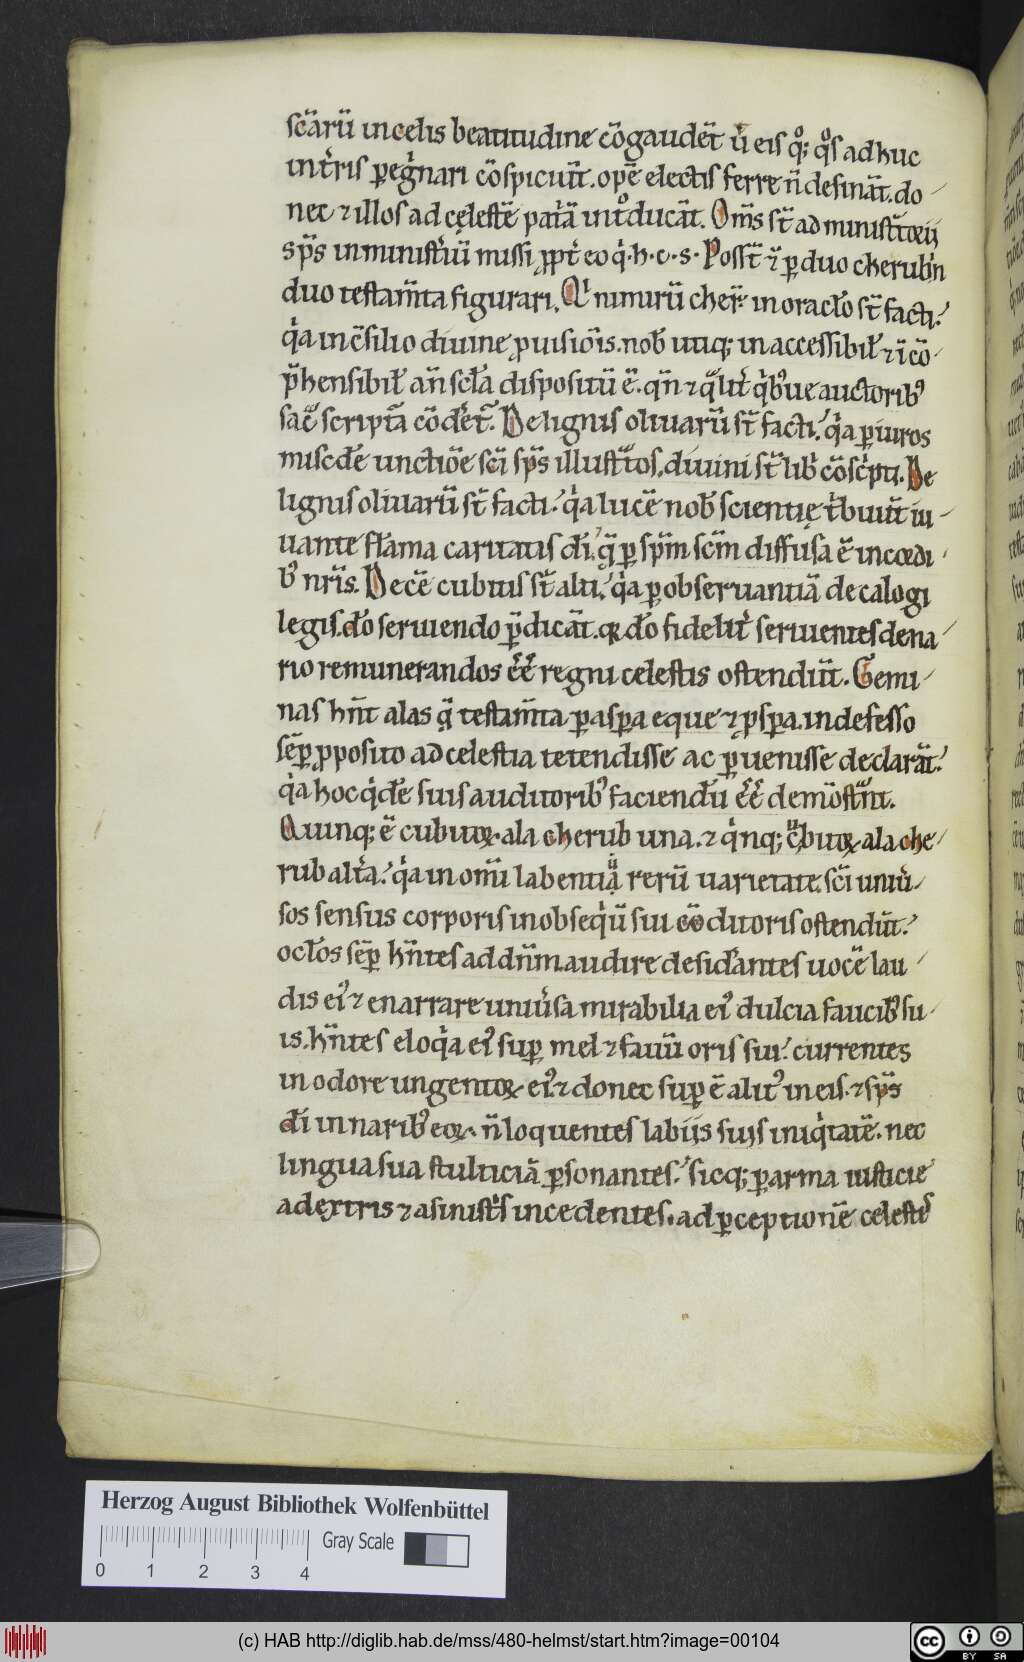 scāꝝ in celis beatitudine cōgaudēt ū eis qͦꝫ qͦs adhuc
in tͥris ꝑegͥnari cōspiciūt. opē electis ferre n̄ desināt. do
nec ⁊ illos ad cęlestē patͥā intͦducāt. Om̄s st̄ administͣtorii
sp̄s in ministͥiū missi ꝓpt̄ eoqͥ .h.c.s. Posst̄ ⁊ ꝑ duo cherubin
duo testam̄ta figurari. Qͥ nimirū cher̄ in oracl̄o st̄ facti.
qͥa in c̄silio diuine ꝓuisiōis. nob̄ utiqꝫ inaccessibil̄ ⁊ īcō
p̄hensibil̄ an̄ scl̄a dispositū ē. qn̄ ⁊ qͣlit̄ qͥbꝰue auctoribꝰ
sacͣ scriptͣa cōdēt̄. De lignis oliuarū st̄ facti. qͥa ꝑ iuros
miscd̄e unctiōe sci sp̄s illustͣtos. diuini st̄ libͥ cōscͥpti. De
lignis oliuarū st̄ facti. qͥa lucē nob̄ scientię tͥbuūt iu
uante flāma caritatis di. q̄ ꝑ sp̄m scm̄ diffusa ē in cordi
bꝰ nr̄is. Decē cubitis st̄ alti. qͥa ꝑ obseruantiā decalogi
legis. dō seruiendo p̄dicāt. qꝫ dō fidelit̄ seruientes dena
rio remunerandos ēē regni celestis ostendūt. Gemi
nas hn̄t alas q̄ testam̄ta ꝑ aspera eque ⁊ ꝓspera. indefesso
sēꝑ ꝓposito ad celestia tetendisse ac ꝑuenisse declarāt.
qͥa hoc qͥde suis auditoribꝰ faciendū ēē demōstͣnt.
Quinqꝫ ē cubitoꝝ ala cherub una. ⁊ qͥnqꝫ cͧbitoꝝ ala che
rub altͥa. qͥa in om̄i labentiū rerū uarietate. sci uniū
sos sensus corporis in obseqͥū sui cōditoris ostendūt.
ocl̄os sēꝑ hn̄tes ad dn̄m. audire desidͥantes uocē lau
dis eiꝰ ⁊ enarrare uniūsa mirabilia eiꝰ dulcia faucibꝰ su
is. hn̄tes eloqͥa eiꝰ suꝑ mel ⁊ fauū oris sui. currentes
in odore ungentoꝝ eiꝰ ⁊ donec suꝑē alitꝰ in eis. ⁊ sp̄s
di in naribꝰ eoꝝ. n̄ loquentes labiis suis iniqͥtatē. nec
lingua sua stulticiā ꝑsonantes. sicqꝫ ꝑ arma iusticie
a dextris ⁊ a sinistͥs incedentes. ad ꝑceptionē celestē
Herzog August Bibliothek Wolfenbüttel
Gray Scale
0 1 2 3 4
(c) HAB http://diglib.hab.de/mss/480-helmst/start.htm?image=00104
cc BY SA